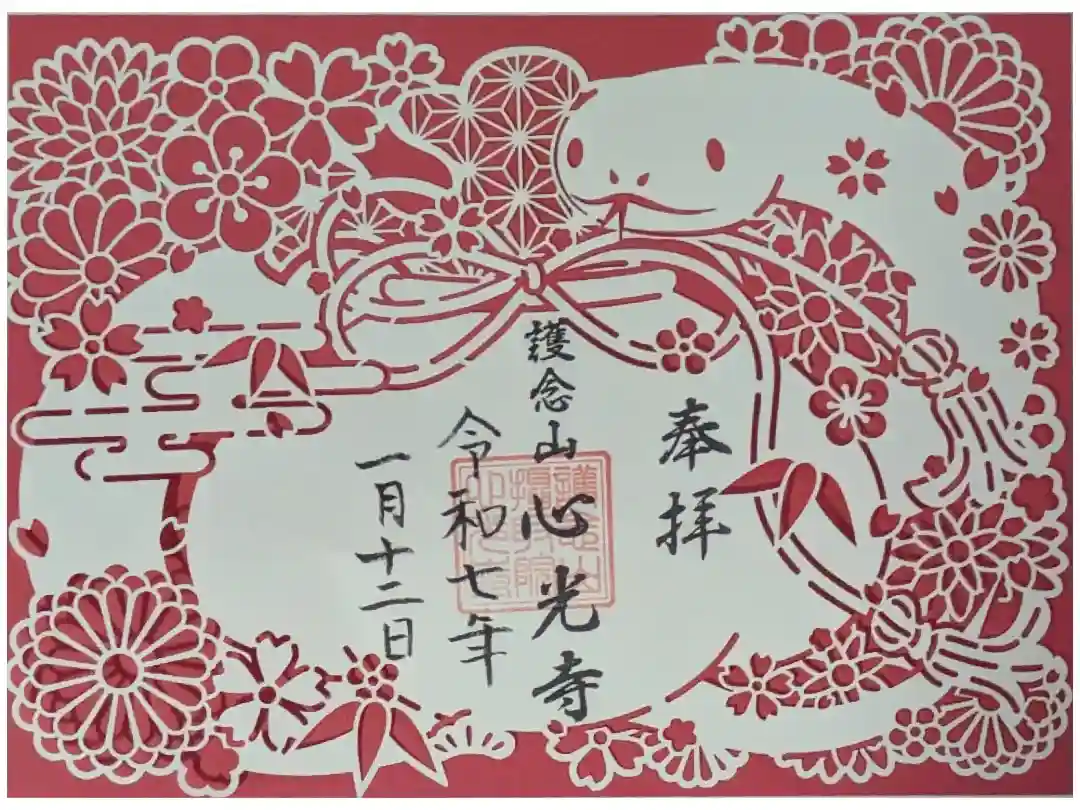 奉拝
護念山心光寺
令和七年
一月十二日